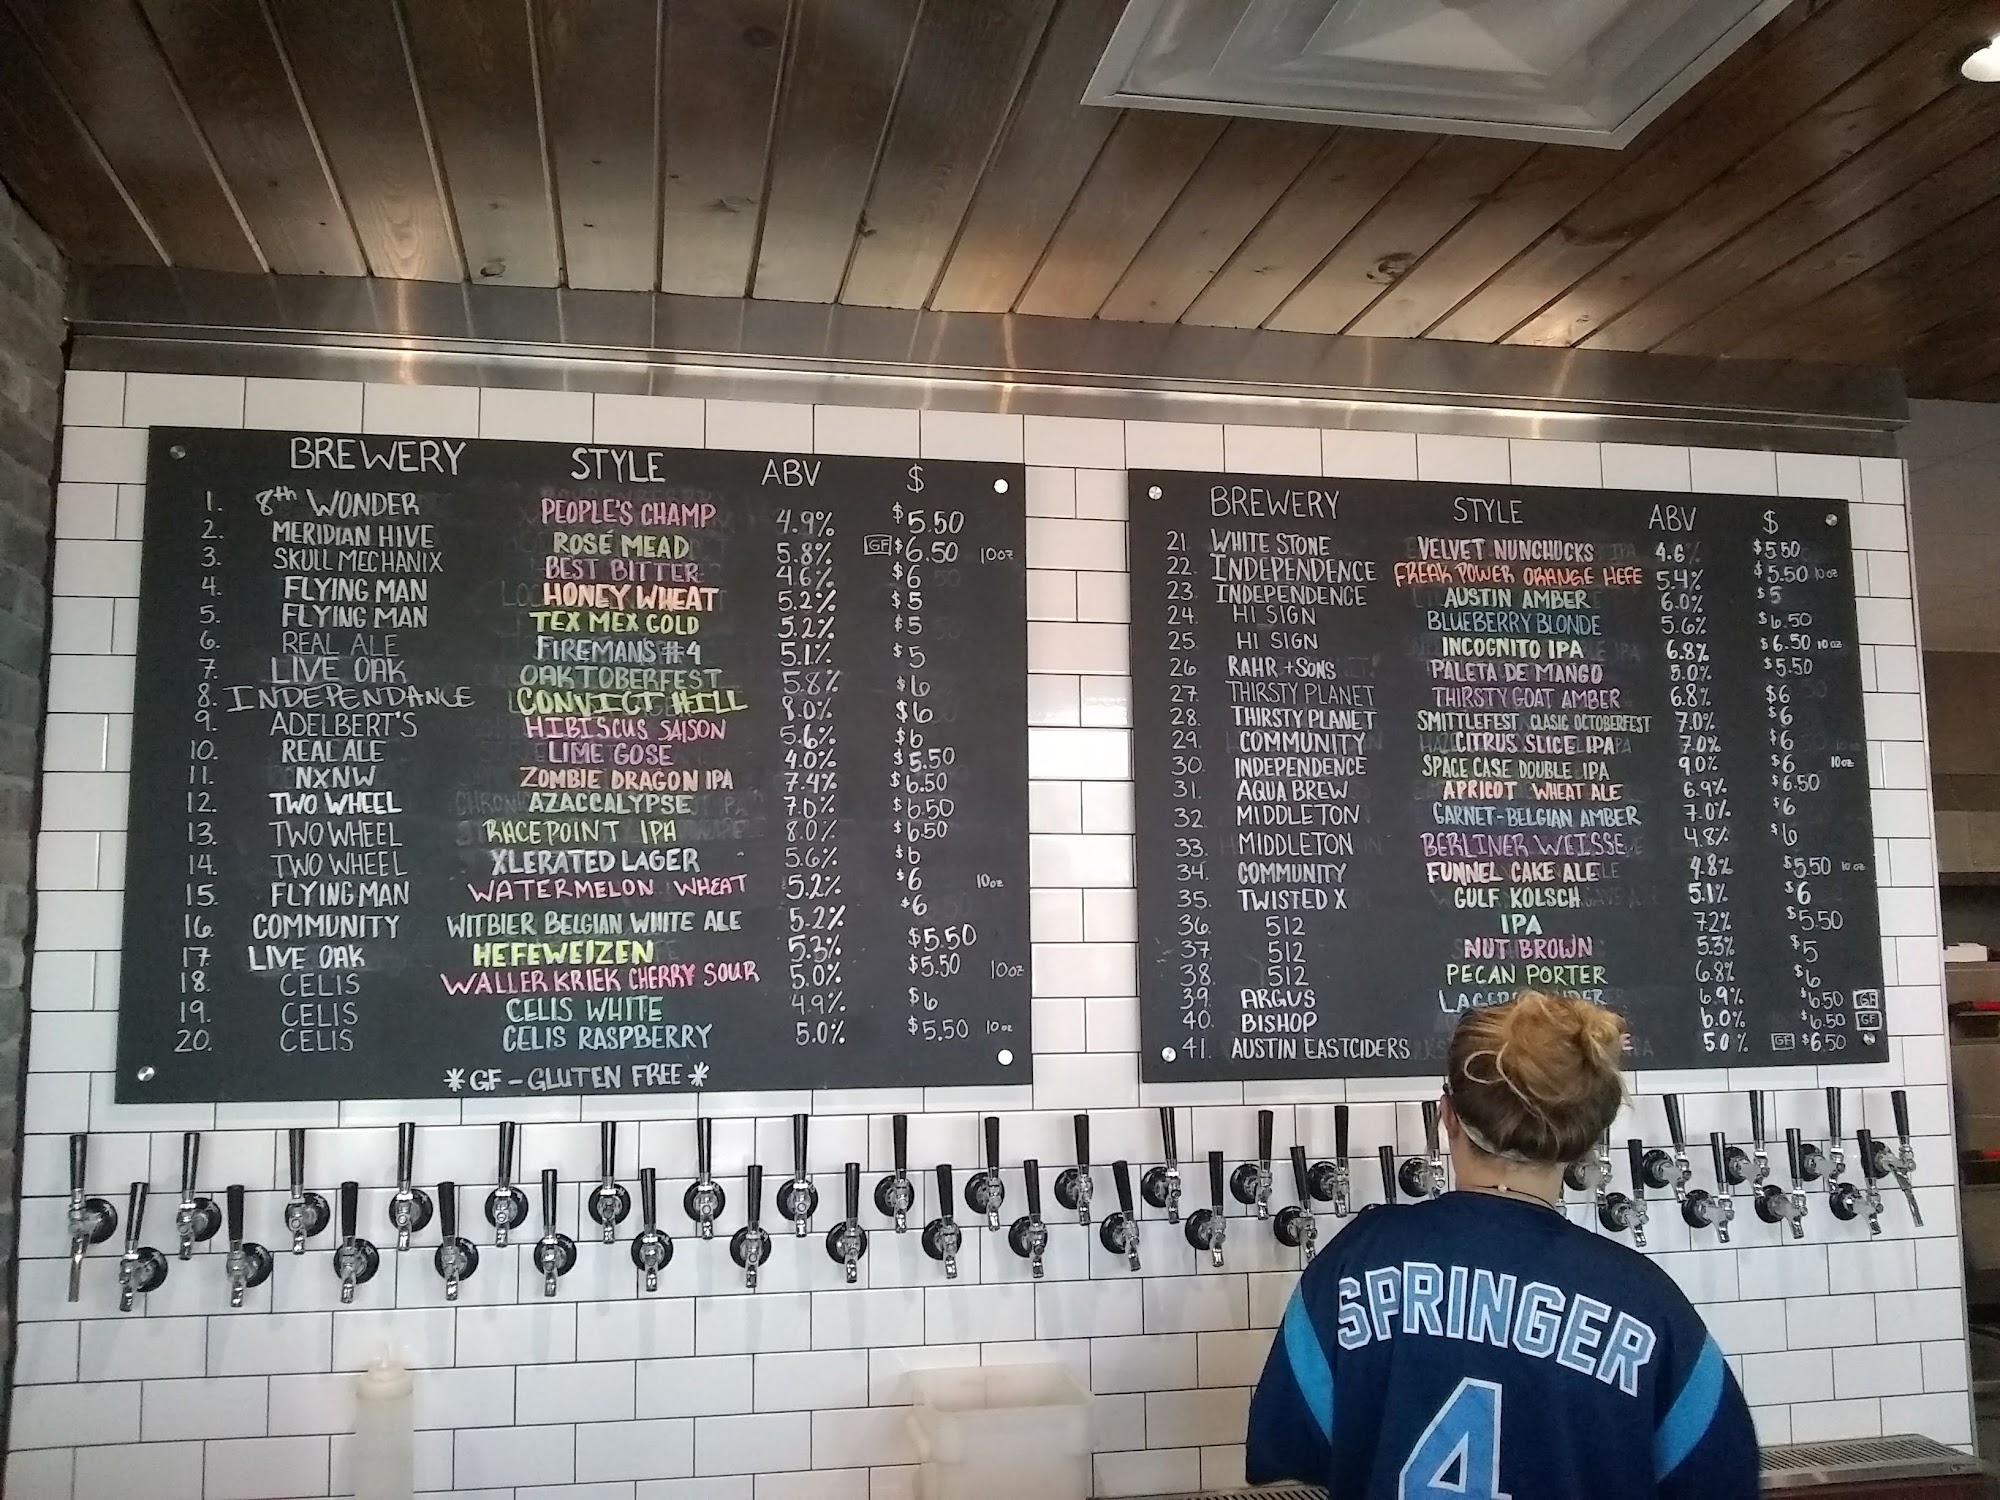 BREWERY STYLE ABV $
1. 8th WONDER PEOPLE'S CHAMP 4.9% $5.50
2. MERIDIAN HIVE ROSÉ MEAD 5.8% GF $6.50 10oz
3. SKULL MECHANIX BEST BITTER 4.6% $6
4. FLYING MAN HONEY WHEAT 5.2% $5
5. FLYING MAN TEX MEX GOLD 5.2% $5
6. REAL ALE FIREMANS #4 5.1% $5
7. LIVE OAK OAKTOBERFEST 5.8% $6
8. INDEPENDANCE CONVICT HILL 8.0% $6
9. ADELBERT'S HIBISCUS SAISON 5.6% $6
10. REAL ALE LIME GOSE 4.0% $5.50
11. NXNW ZOMBIE DRAGON IPA 7.4% $6.50
12. TWO WHEEL AZACCALYPSE 7.0% $6.50
13. TWO WHEEL RACEPOINT IPA 8.0% $6.50
14. TWO WHEEL XLERATED LAGER 5.6% $6
15. FLYING MAN WATERMELON WHEAT 5.2% $6 10oz
16. COMMUNITY WITBIER BELGIAN WHITE ALE 5.2% $6
17. LIVE OAK HEFEWEIZEN 5.3% $5.50
18. CELIS WALLER KRIEK CHERRY SOUR 5.0% $5.50 10oz
19. CELIS CELIS WHITE 4.9% $6
20. CELIS CELIS RASPBERRY 5.0% $5.50 10oz
*GF - GLUTEN FREE*
BREWERY STYLE ABV $
21 WHITE STONE VELVET NUNCHUCKS 4.6% $5.50
22. INDEPENDENCE FREAK POWER ORANGE HEFE 5.4% $5.50 10oz
23. INDEPENDENCE AUSTIN AMBER 6.0% $5
24. HI SIGN BLUEBERRY BLONDE 5.6% $6.50
25. HI SIGN INCOGNITO IPA 6.8% $6.50 10oz
26. RAHR + SONS PALETA DE MANGO 5.0% $5.50
27. THIRSTY PLANET THIRSTY GOAT AMBER 6.8% $6
28. THIRSTY PLANET SMITTLEFEST CLASIC OCTOBERFEST 7.0% $6
29. COMMUNITY CITRUS SLICE IPA 7.0% $6
30. INDEPENDENCE SPACE CASE DOUBLE IPA 9.0% $6 10oz
31. AQUA BREW APRICOT WHEAT ALE 6.9% $6.50
32. MIDDLETON GARNET-BELGIAN AMBER 7.0% $6
33. MIDDLETON BERLINER WEISSE 4.8% $6
34. COMMUNITY FUNNEL CAKE ALE 4.8% $5.50 10oz
35. TWISTED X GULF KOLSCH 5.1% $6
36. 512 IPA 7.2% $5.50
37. 512 NUT BROWN 5.3% $5
38. 512 PECAN PORTER 6.8% $6
39. ARGUS 6.9% $6.50 GF
40. BISHOP 6.0% $6.50 GF
41. AUSTIN EASTCIDERS 5.0% GF $6.50
SPRINGER
4